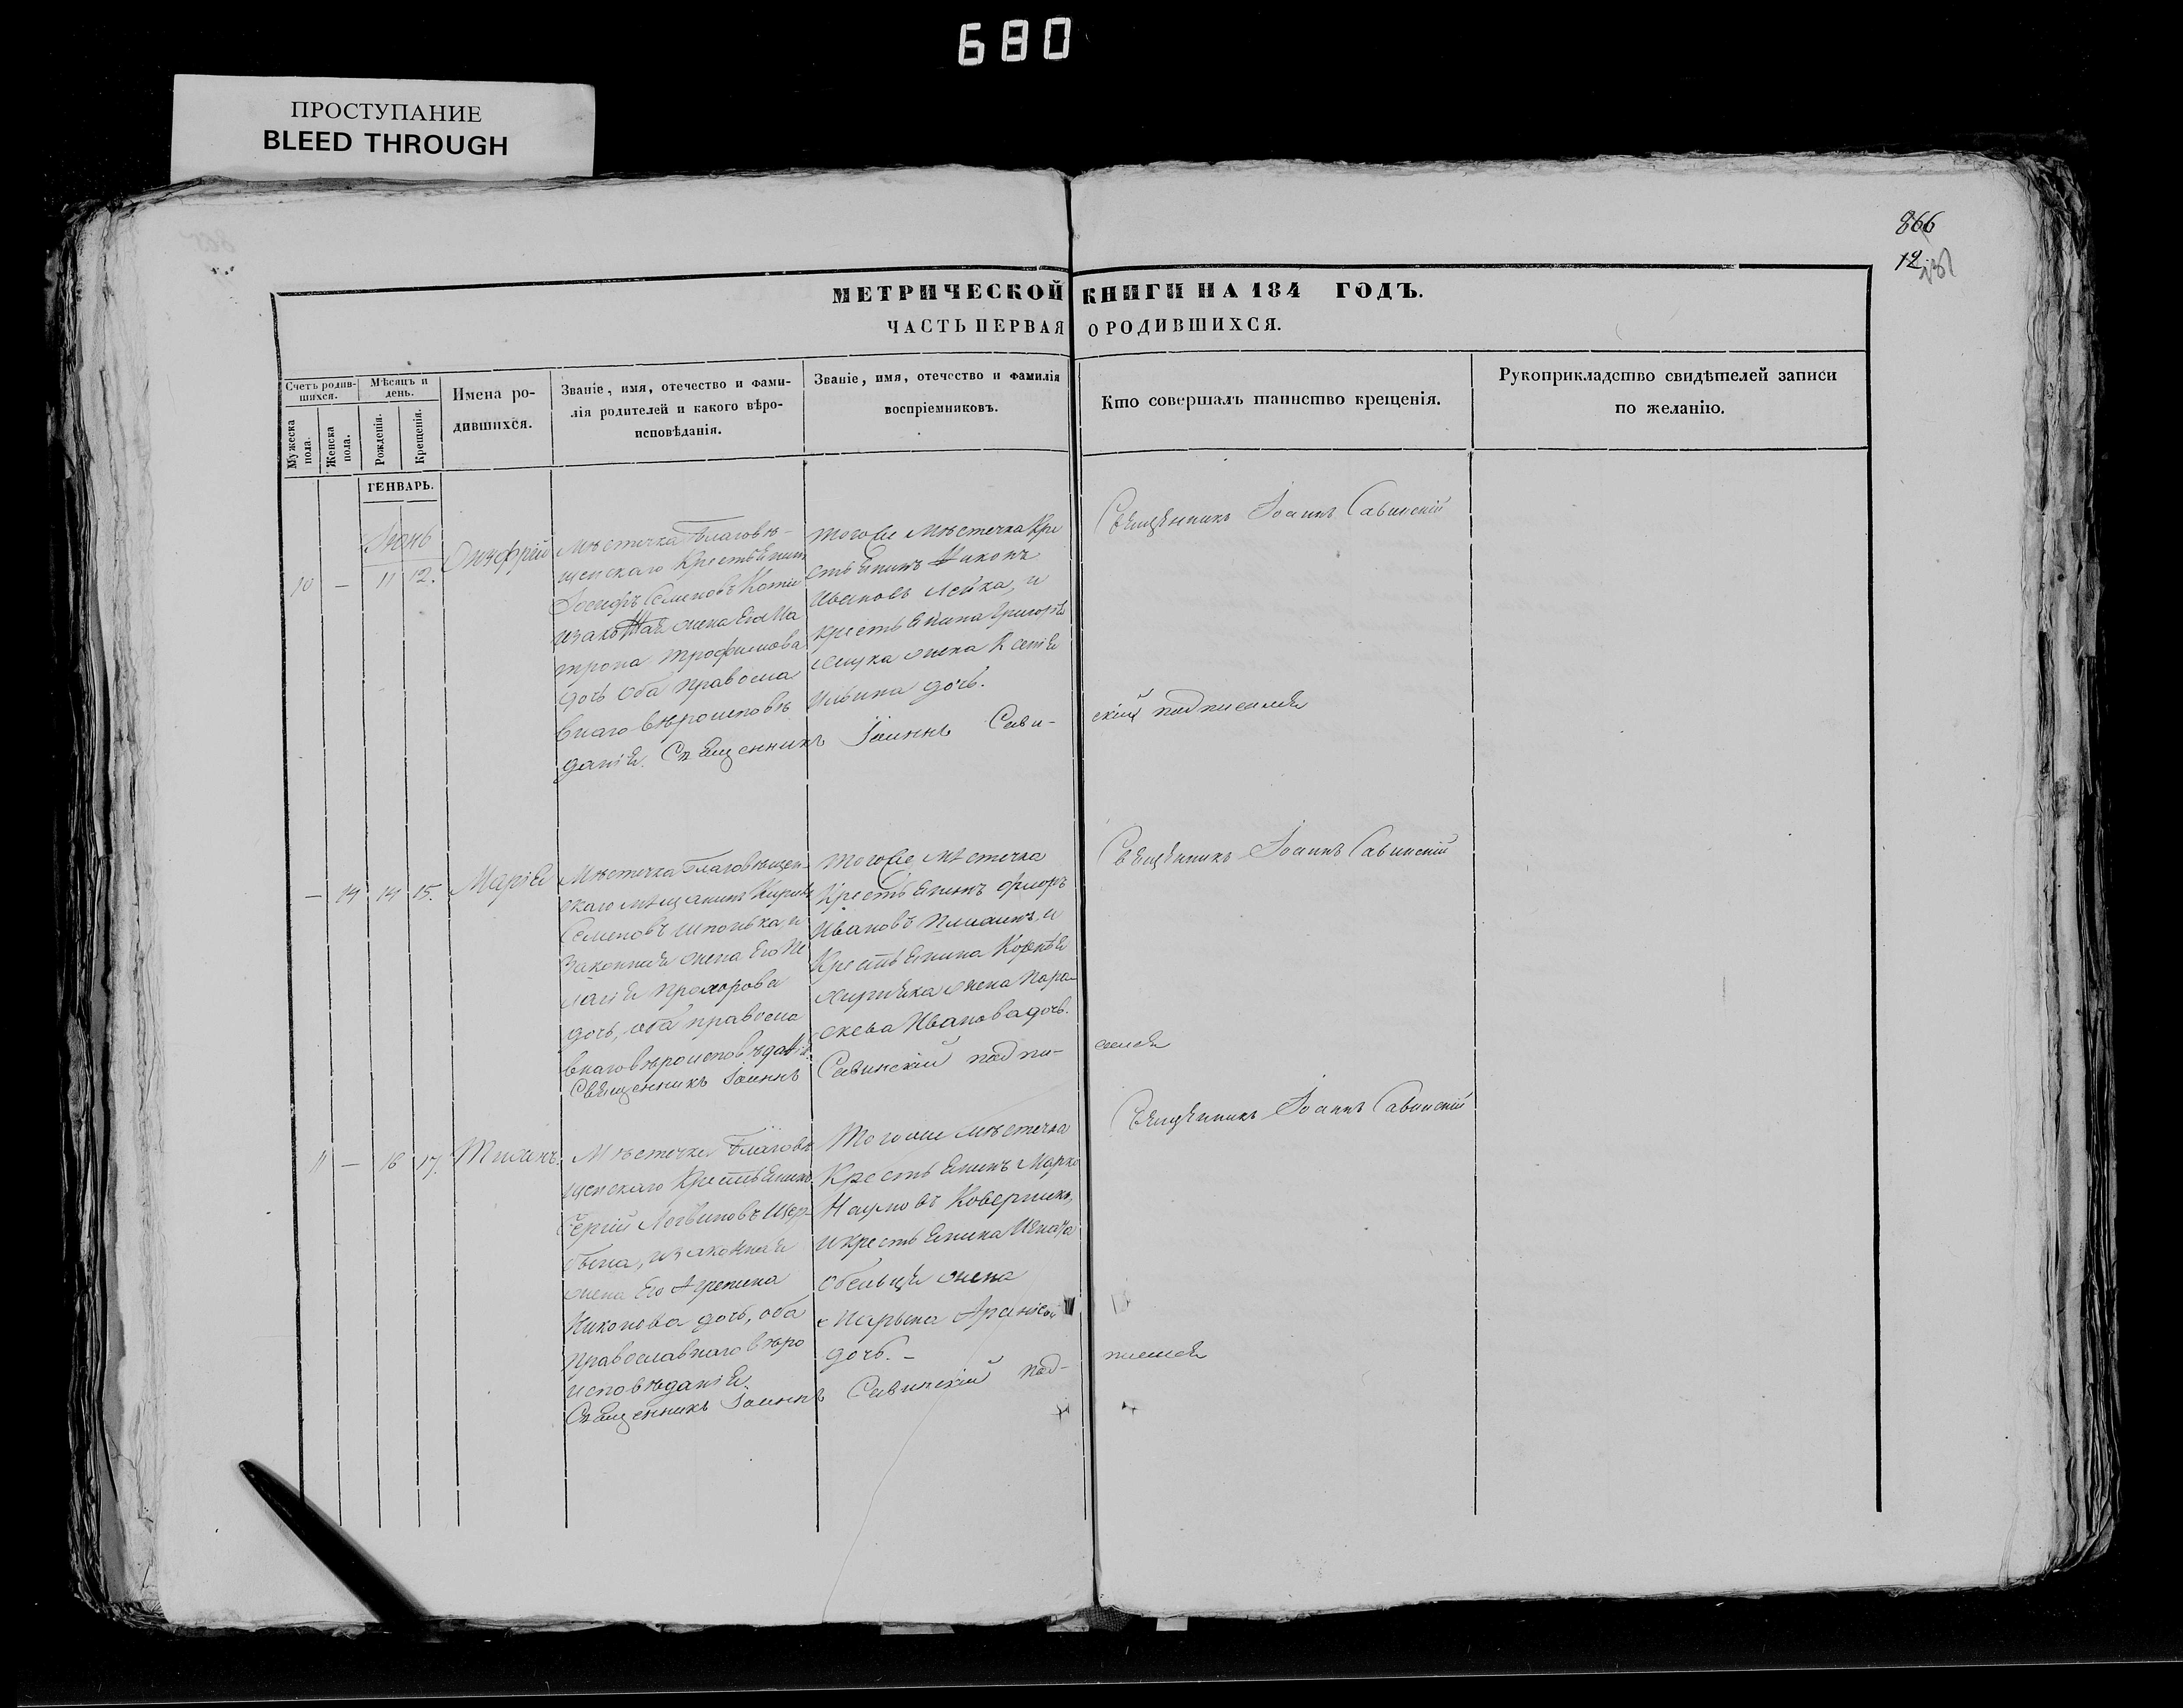 680
ПРОСТУПАНИЕ
BLEED THROUGH
866
12
МЕТРИЧЕСКОЙ КНИГИ НА 184 ГОДЪ.
ЧАСТЬ ПЕРВАЯ О РОДИВШИХСЯ.
Счетъ родив-
шихся.
Мужеска
пола.
Женска
пола.
Мѣсяцъ и
день.
Рожденія.
Крещенія.
Имена ро-
дившихся.
Званіе, имя, отечество и фами-
лія родителей и какого вѣро-
исповѣданія.
Званіе, имя, отечество и фамилія
воспріемниковъ.
Кто совершалъ таинство крещенія.
Рукоприкладство свидѣтелей записи
по желанію.
ГЕНВАРЬ.
Іюнь
10 — 11 12.
Онуфрій
Мѣстечка Благовѣ-
щенскаго Крестьянинъ
Іосифъ Семеновъ
жена Его Ма
трона Трофимова
дочь оба Правосла
внаго вѣроисповѣ
данія.
Тогоже Мѣстечка Кре
стьянинъ Никонъ
Ивановъ Лейка, и
крестьянина Григорія
жена Ксенія
Ильина дочь.
Священникъ Іоаннъ Савинскій
Священникъ Іоаннъ Сави-
скій подписался
— 14 14 15.
Марія
Мѣстечка Благовѣщен-
скаго Мѣщанинъ
Семеновъ Шполька, и
Законная жена Его Пе
лагія Прохорова
дочь, оба Правосла
внаго вѣроисповѣданія
Тогоже Мѣстечка
Крестьянинъ Флоръ
Ивановъ и
Крестьянина Корнѣя
жена Пара
скева Иванова дочь.
Священникъ Іоаннъ Савинскій
Священникъ Іоаннъ Савинскій подпи-
сался
11 — 16 17.
Тихонъ.
Мѣстечка Благовѣ
щенскаго Крестьянинъ
Сергій Логвиновъ Щер-
бина, и законная
жена Его Агрепина
Никонова дочь, оба
Православнаго вѣро
исповѣданія.
Тогоже мѣстечка
Крестьянинъ Марко
Наумовъ Коверникъ,
и крестьянина Игната
жена
Марына
дочь. —
Священникъ Іоаннъ Савинскій
Священникъ Іоаннъ Савинскій под-
писался